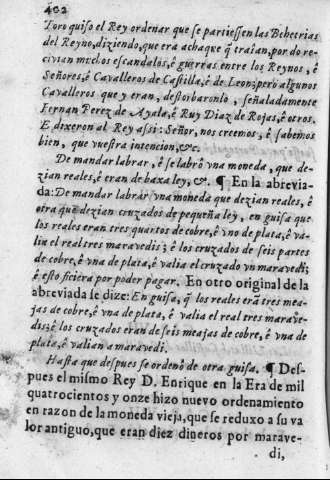 402
Toro quiso el Rey ordenar que se partiessen las Behetrias
del Reyno, diziendo, que era achaque q̃ traian, por do re-
civian muchos escandalos, è guerras entre los Reynos, è
Señores, è Cavalleros de Castilla, è de Leon; però algunos
Cavalleros que y eran, destorbaronlo, señaladamente
Fernan Perez de Ayala, è Ruy Diaz de Rojas, è otros.
E dixeron al Rey assi: Señor, nos creemos, è sabemos
bien, que vuestra intencion, &c.
De mandar labrar, è se labrò vna moneda, que de-
zian reales, è eran de baxa ley, &. ¶ En la abrevia-
da: De mandar labrar vna moneda que dezian reales, è
otra que dezian cruzados de pequeña ley, en guisa que
los reales eran tres quartos de cobre, è vno de plata, è va-
lia el real tres maravedis; è los cruzados de seis partes
de cobre, è vna de plata, è valia el cruzado vn maravedi;
è esto ficiera por poder pagar. En otro original de la
abreviada se dize: En guisa, q̃ los reales erã tres mea-
jas de cobre, è vna de plata, è valia el real tres marave-
dis; è los cruzados eran de seis meajas de cobre, è vna de
plata, è valian a maravedi.
Hasta que despues se ordenò de otra guisa. ¶ Des-
pues el mismo Rey D. Enrique en la Era de mil
quatrocientos y onze hizo nuevo ordenamiento
en razon de la moneda vieja, que se reduxo a su va
lor antiguo, que eran diez dineros por marave-
di,